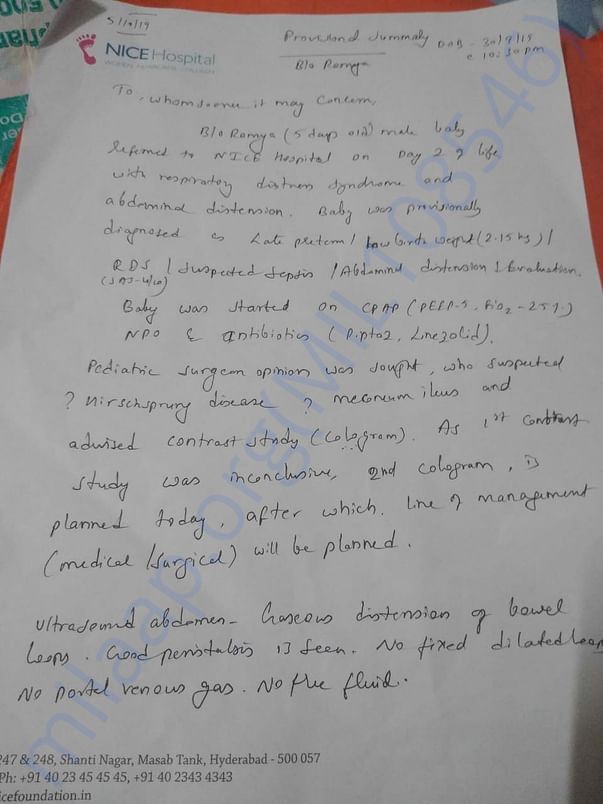 5/9/19
NICE Hospital
WOMEN NEWBORN CHILDREN
Provisional Summary
DOB - 30/9/19
@ 10:30pm
B/o Ramya
To, whomsoever it may concern,
B/o Ramya (5 days old) male baby
referred to NICE Hospital on Day 2 of life
with respiratory distress syndrome and
abdominal distension. Baby was provisionally
diagnosed as Late preterm / Low birth weight (2.15 kg) /
RDS / Suspected Sepsis / Abdominal distension / Evaluation.
(SAS-4/10)
Baby was started on CPAP (PEEP-5, FiO2-25%.)
NPO & antibiotics (Piptaz, Linezolid).
Pediatric surgeon opinion was sought, who suspected
? Hirschsprung disease ? meconium ileus and
advised contrast study (Cologram). As 1st contrast
study was inconclusive, 2nd cologram, is
planned today, after which. line of management
(medical / surgical) will be planned.
Ultrasound abdomen - Gaseous distension of bowel
loops. Good peristalsis is seen. No fixed dilated loop
No portal venous gas. No free fluid.
milaap.org(MIL108546)
247 & 248, Shanti Nagar, Masab Tank, Hyderabad - 500 057
Ph: +91 40 23 45 45 45, +91 40 2343 4343
icefoundation.in